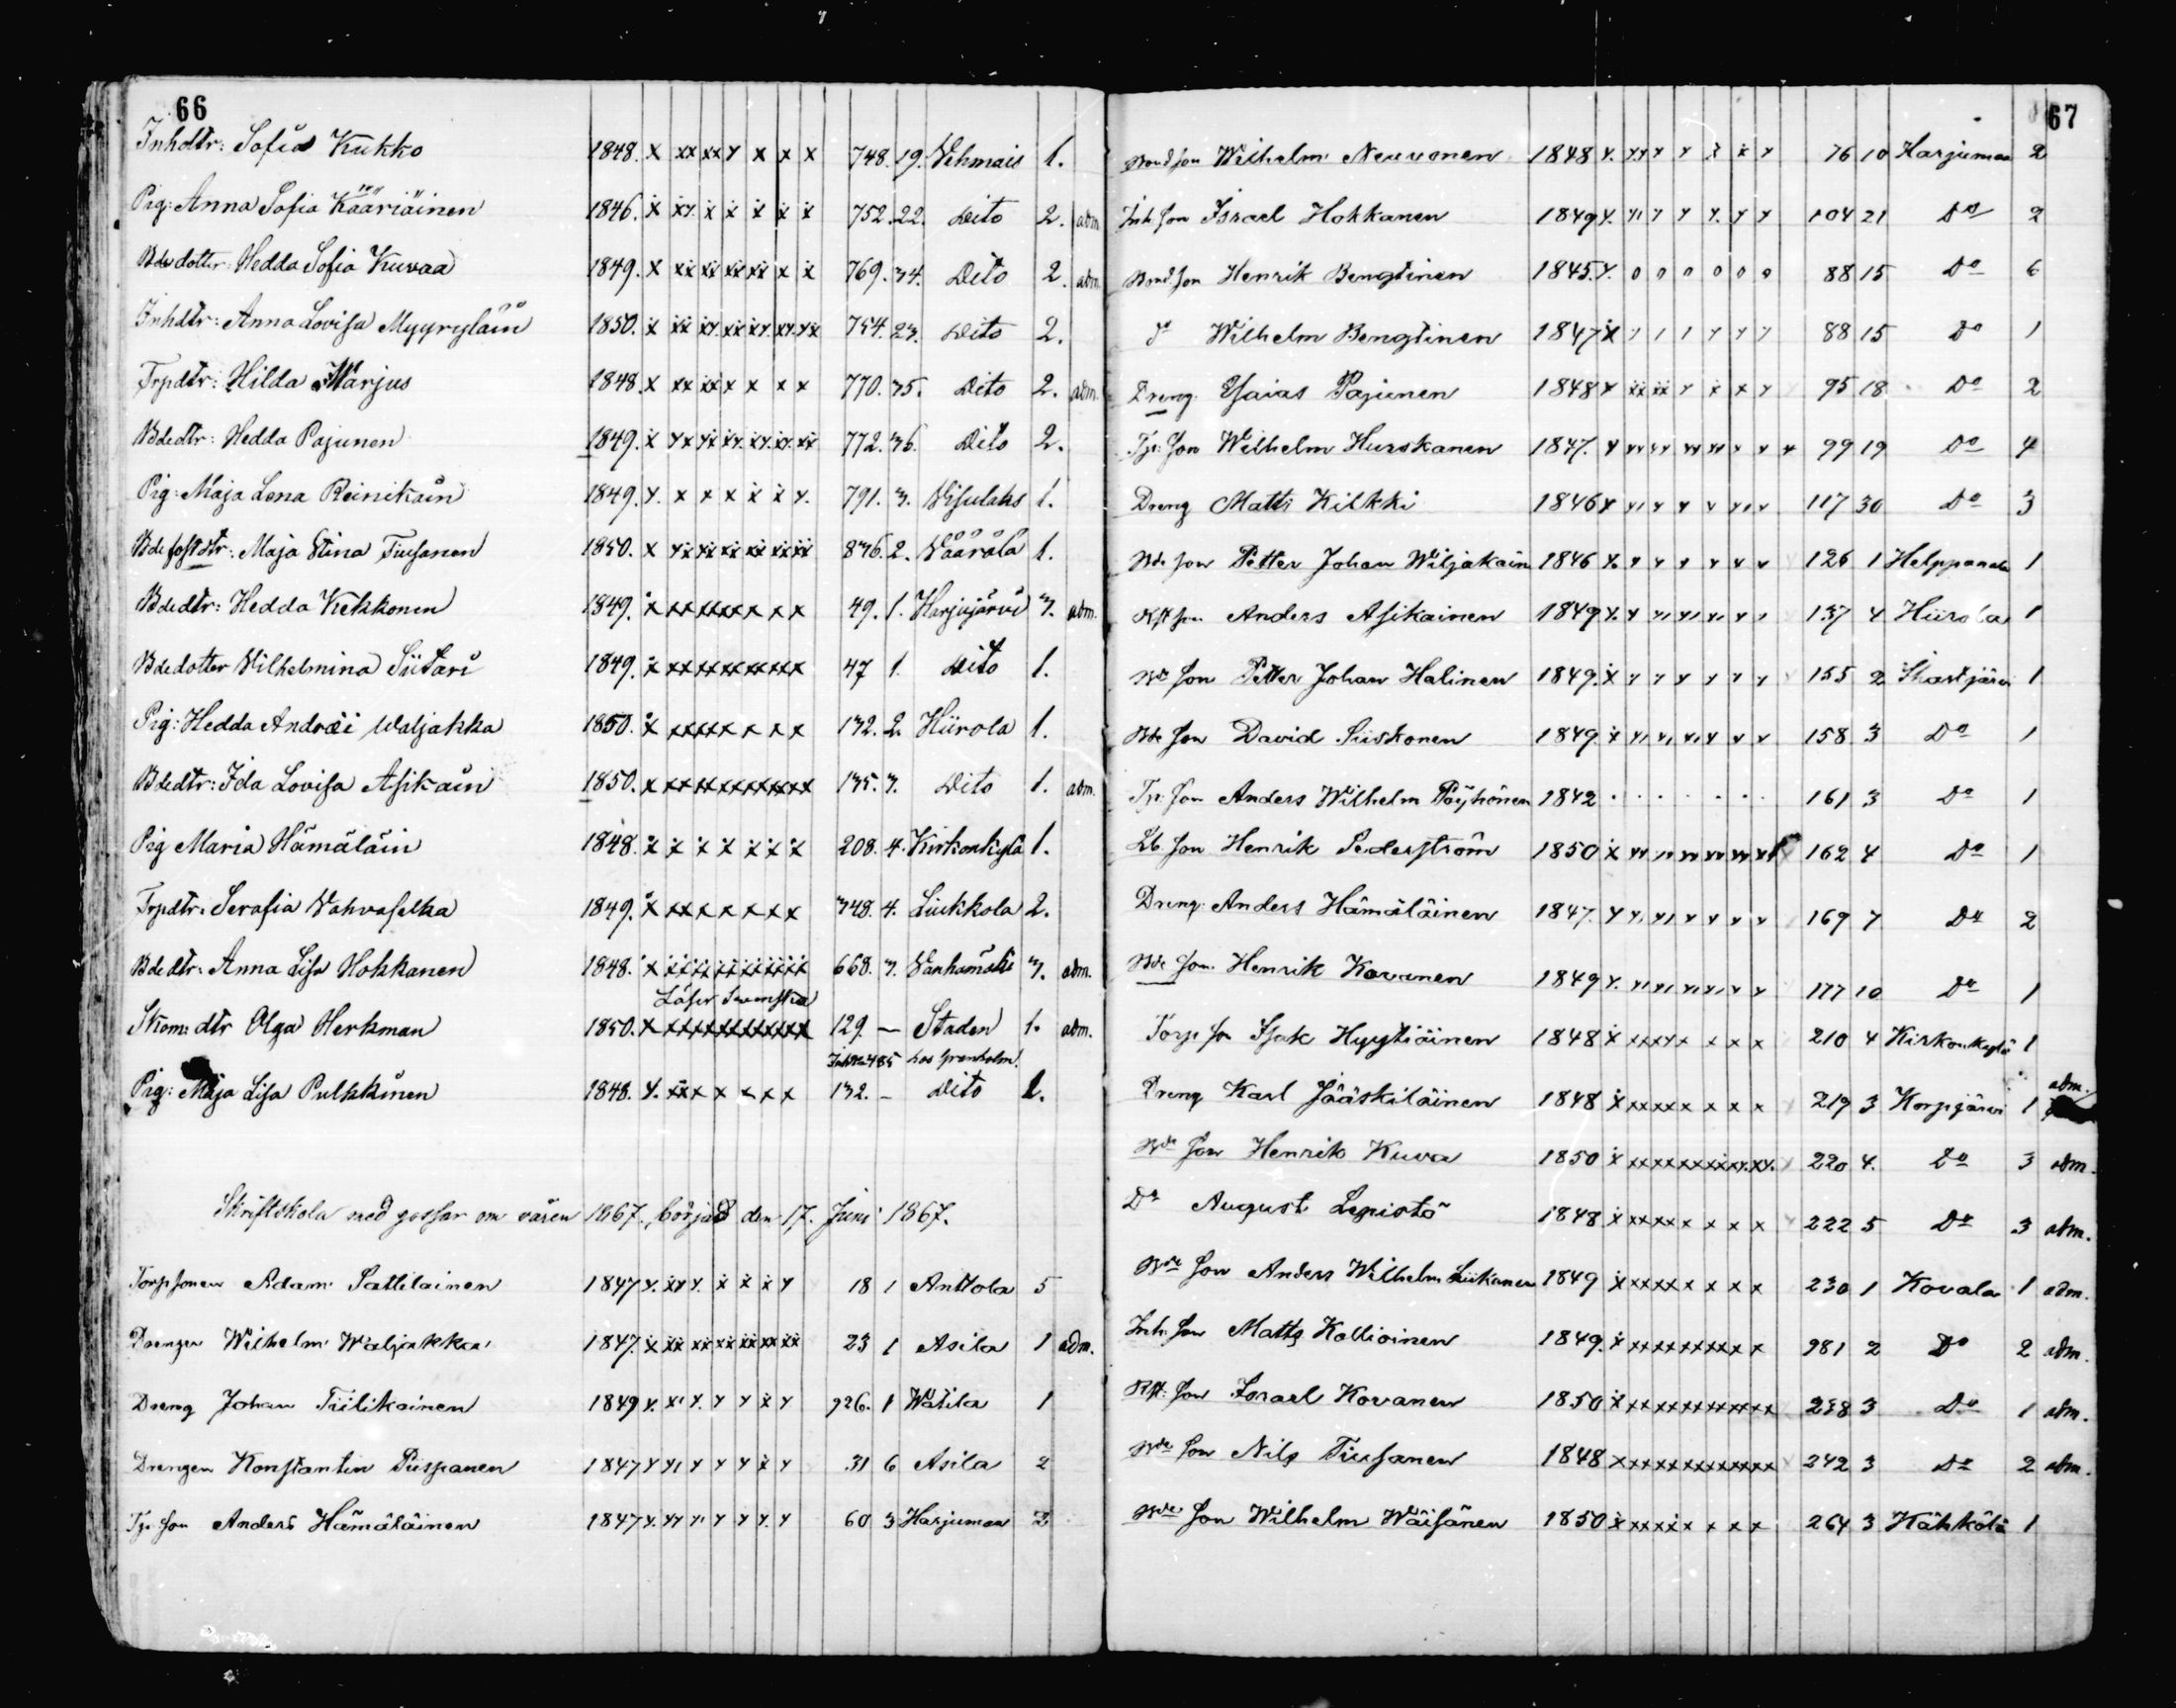 66
Inhdtr: Sofia Kukko 1848. x xx xx y x x x 748. 19. Wehmais 1.
Pig: Anna Sofia Kääriäinen 1846. x xx x x x x x 752. 22. Dito 2. adm
Bdedotter Hedda Sofia Kuvaa 1849. x xx xx xx xx x x 769. 34. Dito 2. adm.
Inhdtr: Anna Lovisa Myyryläin 1850. x xx xx xx xx xx xx 754. 23. Dito 2.
Trpdtr: Hilda Marjus 1848. x xx xx x x x x 770. 35. Dito 2. adm.
Bdedtr: Hedda Pajunen 1849. x xx xx xx xx xx xx 772. 36. Dito 2.
Pig: Maja Lena Reinikain 1849. x. x x x x x x. 791. 3. Visulahs 1.
Bde fostdtr: Maja Stina Tiusanen 1850. x xx xx xx xx xx xx 836. 2. Väärälä 1.
Bdedtr: Hedda Kekkonen 1849. x xxxxxx x x x 49. 1. Harjujärvi 3. adm.
Bdedotter Vilhelmina Siitari 1849. x xxxxxxxxxx 47 1. Dito 1.
Pig: Hedda Andrëi Waljakka 1850. x xxxxx x x x 132. 2. Hiirola 1.
Bdedtr: Ida Lovisa Asikain 1850. x xxxxxxxxxxxx 135. 3. Dito 1. adm.
Pig Maria Hämäläin 1848. x x x x x x x 208. 4. Kirkonkylä 1.
Trpdtr. Serafia Vahvaselka 1849. x xxx x x x x 348. 4. Liukkola 2.
Bdedtr: Anna Lisa Hokkanen 1848. x xxxxxxxxxxxx 668. 3. Vanhamäki 3. adm.
Läser Svenska
Skom: dtr Olga Herkman 1850. x xxxxxxxxxxxx 129. — Staden 1. adm.
Pig: Maja Lisa Pulkkinen 1848. x. xxx x x x x 132. — Dito 1.
Skriftskola med gossar om våren 1867, börjad den 17. Juni 1867.
Torpsonen Adam Sattilainen 1847 x. xx x. x x x x 18 1 Anttola 5
Drengen Wilhelm Waljakka 1847. x xx xx xx xx xx xx 23 1 Asila 1 adm.
Dreng Johan Tiilikainen 1849 x. xx x. x x x x 926. 1 Wätilä 1
Drengen Konstantin Piispanen 1847 x xx x x x x x 31 6 Asila 2
Tp. son Anders Hämäläinen 1847 x. xx x x x x. x 60 3 Harjumaa 2
67
Bond son Wilhelm Neuvonen 1848 x. xx x x x x x 76 10 Harjumaa 2
Inh. son Israel Hokkanen 1849 x. xx x x x. x x 104 21 Do 2
Bond. son Henrik Bengtinen 1845. x. o o o o o o 88 15 Do 6
d Wilhelm Bengtinen 1847 x x x x x x x 88 15 Do 1
Dreng Esaias Pajunen 1848 x xx xx x x x x 95 18 Do 2
Tp. son Wilhelm Hurskanen 1847. x xx xx xx xx x x x 99 19 Do 4
Dreng Matts Kilkki 1846 x xx x x x xx x 117 30 Do 3
Bde son Petter Johan Wiljakain 1846 x. x x x x x x 126 1 Helppanala 1
Anders Asikainen 1849 x. x xx xx x. x x 137 4 Hiirola 1
Bde son Petter Johan Halinen 1849. x x x x x x x 155 2 1
Bde son David Siiskonen 1849 x xx xx xx x x x 158 3 Do 1
Tp. son Anders Wilhelm Pöyhönen 1842 . . . . . . . 161 3 Do 1
Henrik Sederström 1850 x xx xx xx xx xx xx 162 4 Do 1
Dreng Anders Hämäläinen 1847. x x. xx x x x x 169 7 Do 2
Bde son Henrik Kovanen 1849 x. xx xx xx xx x x 177 10 Do 1
Torp son Isak Hyytiäinen 1848 x xxxxx x x x 210 4 Kirkonkylä 1
Dreng Karl Jääskiläinen 1848 x xxxxx x x x 219 3 Korpijärvi 1 adm.
Bde son Henrik Kuva 1850 x xxxxxxxxxxxx. 220 4. Do 3 adm.
Do August Lepistö 1848 x xxxxx x x x 222 5 Do 3 adm.
Bde son Anders Wilhelm Liikanen 1849 x xxxxx x x x 230 1 Kovala 1 adm.
Inh. son Matts Kollioinen 1849. x xxxxxxxxx x 981 2 Do 2 adm.
son Israel Kovanen 1850 x xxxxxxxxxxxx 238 3 Do 1 adm.
Bde son Nils Tiusanen 1848 x xxxxxxxxxxxx 242 3 Do 2 adm.
Bde son Wilhelm Wäisänen 1850 x xxxxx x x x 264 3 Kähkölä 1